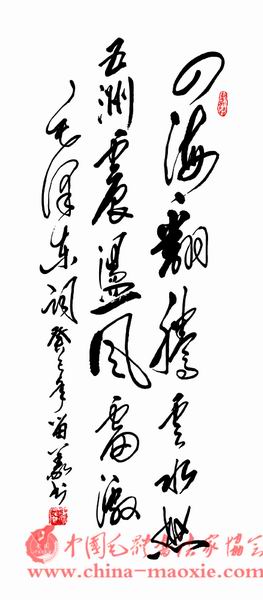 四海翻腾云水怒
五洲震盪风雷激
毛泽东词癸巳年
中国毛体书法家协会
www.china-maoxie.com